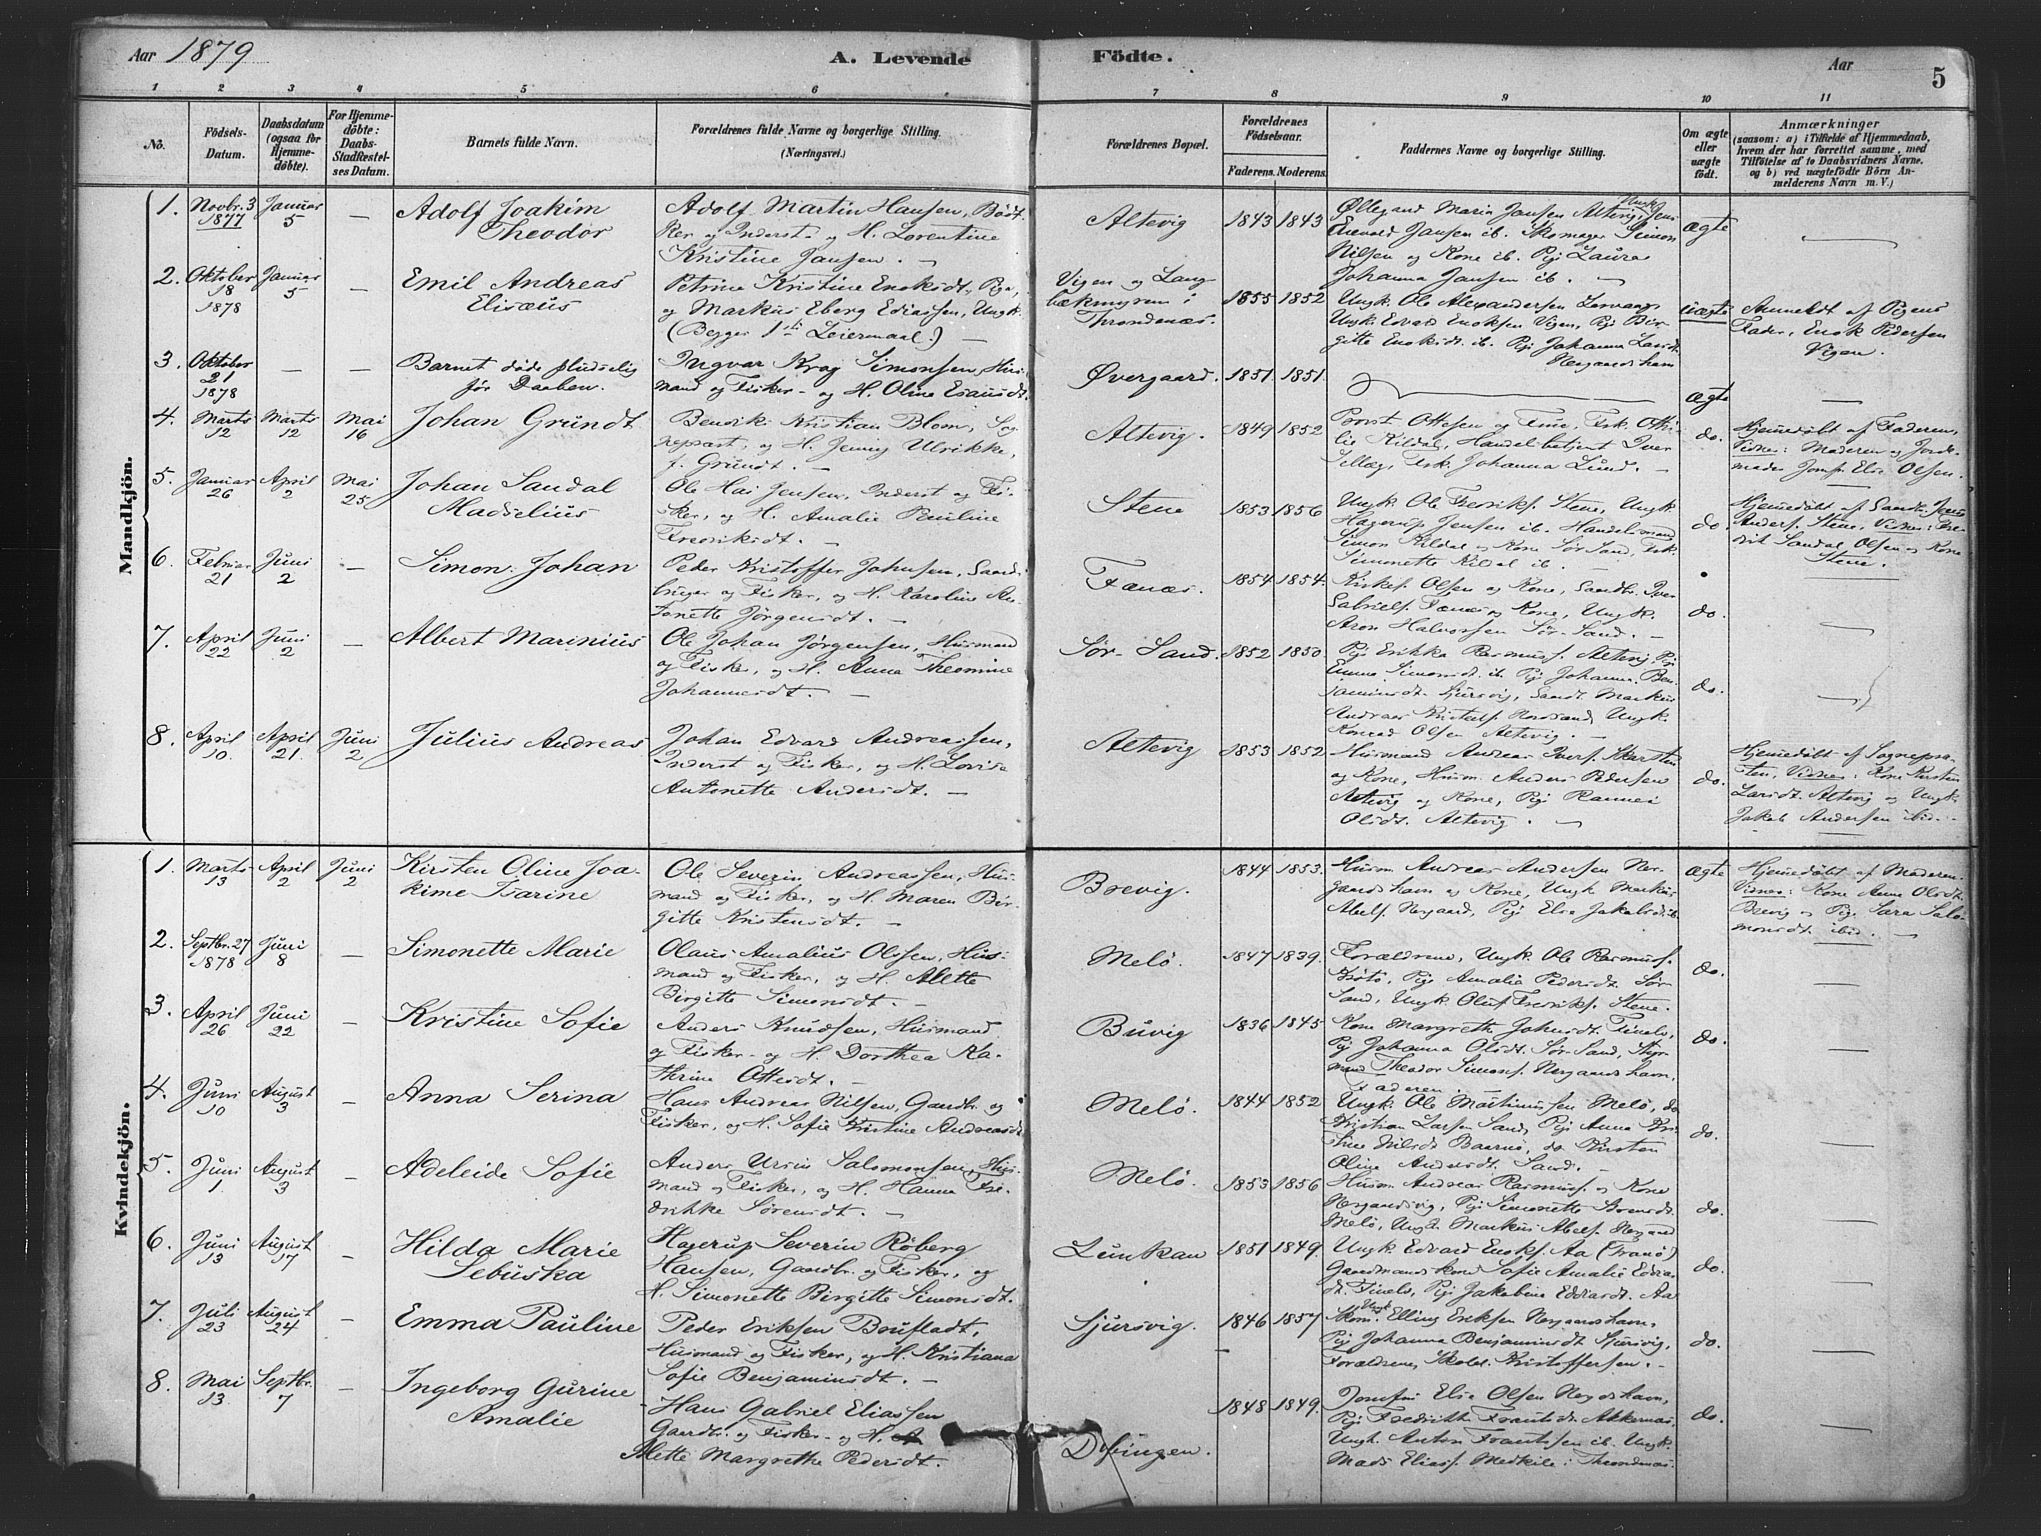 Aar 1879
A. Levende Födte.
Aar
5
1 2 3 4 5 6 7 8 9 10 11
No.
Födsels-
Datum.
Daabsdatum
(ogsaa for
Hjemme-
döbte).
For Hjemme-
döbte:
Daabs-
Stadfæstel-
ses Datum.
Barnets fulde Navn.
Forældrenes fulde Navne og borgerlige Stilling.
(Næringsvei.)
Forældrenes Bopæl.
Forældrenes
Födselsaar.
Faderens. Moderens.
Faddernes Navne og borgerlige Stilling.
Om ægte
eller
uægte
födt.
Anmærkninger
(saasom: a) i Tilfælde af Hjemmedaab,
hvem der har forrettet samme, med
Tilföielse af to Daabsvidners Navne.
og b) ved uægtefödte Börn An-
melderens Navn m. V.)
Mandkjön.
1. Novbr. 3 1877
Januar 5
—
Adolf Joakim
Theodor
Adolf Martin Hansen, Bød-
ker og Inderst - og H. Lorentine
Kristine Jansen. —
Altevig
1843 1843
Øllegaard Maria Jansen Altevig,
Jansen ib. Skomager Simon
Nilsen og Kone ib. Pige Laura
Johanna Jansen ib. —
ægte
—
2. Oktober 18 1878
Januar 5
—
Emil Andreas
Elisæus
Petrine Kristine Enoksdt. Pige,
og Markus Eberg Ediassen, Ungk.
(Begges 1ste Leiermaal.) —
Vigen og Lang-
bækmyren i
Throndenæs.
1855 1852
Ungk. Ole Alexandersen
Ungk. Edvard Enoksen Vigen, Pige Bir-
gitte Enoksdt. ib. Pige Johanna
Nergaardshavn
uægte
Anmeldt af Pigens
Fader, Enok Pedersen
Vigen.
3. Oktober 21 1878
—
—
Barnet döde pludselig
før Daaben.
Ingvar Krog Simonsen, Hus-
mand og Fisker - og H. Oline Esausdt.
Øvergaard.
1851 1851.
ægte
—
4. Marts 12
Marts 12
Mai 16
Johan Gründt
Benorik Kristian Blom, Sog-
neprest, og H. Jenny Ulrikke,
f. Gründt. —
Altevig.
1849 1852
Provst Ottesen og Frue, Frk. Otti-
lie Kildal, Handelsbetjent Iver
Frk. Johanna Lund. —
do.
Hjemmedøbt af Faderen,
Vidner: Moderen og Jorde-
moder Jomfr. Else Olsen.
—
5. Januar 26
April 2
Mai 25
Johan Sandal
Maddelius
Ole Hai Jensen, Inderst og Fi-
sker, og H. Amalie Pauline
Fredriksdt. —
Stene
1853 1856
Ungk. Ole Fredriks. Stene, Ungk.
Hagerup Jensen ib. Handelsmand
Simon Kildal og Kone Sør-Sand, Frk.
Simonette Kildal ib. —
do.
Hjemmedøbt af Gaardb. Jens
Anders. Stene, Vidner: Fre-
drik Sandal Olsen og Kone
Stene.
6. Februar 21
Juni 2
—
Simon Johan
Peder Kristoffer Johnsen, Gaard-
bruger og Fisker, og H. Karoline An-
tonette Jørgensdt. —
Fanæs.
1854 1854.
Olsen og Kone, Gaardbr. Iver
Gabriels. Fanæs og Kone, Ungk.
Aron Halvorsen Sør-Sand. —
do.
—
7. April 22
Juni 2
—
Albert Marinius
Ole Johan Jørgensen, Husmand
og Fisker, og H. Anna Theomine
Johannesdt. —
Sør-Sand.
1852 1850.
Pige Erikka Rasmus. Altevig, Pige
Emma Simonsdt. ib. Pige Johanna Ben-
jaminsdt. Sjursvig, Gaardb. Markus
Andreas Kristofs. Nordsand, Ungk.
Konrad Olsen Altevig. —
do.
—
8. April 10.
April 21.
Juni 2
Julius Andreas
Johan Edvard Andreassen,
Inderst og Fisker, og H. Lovise
Antonette Andersdt. —
Altevig
1853 1852
Husmand Andreas Ivers. Skarsten
og Kone, Husm. Anders Pedersen
Altevig og Kone, Pige Rannei
Olsdt. Altevig. —
do.
Hjemmedøbt af Sognepre-
sten, Vidner: Kone Kirsten
Larsdt. Altevig og Ungk.
Jakob Andersen ibid. —
Kvindekjön.
1. Marts 13
April 2
Juni 2
Kirsten Oline Joa-
kime Tsarine
Ole Severin Andreassen, Hus-
mand og Fisker, og H. Maren Bir-
gitte Kristensdt. —
Brevig.
1844 1853.
Husm. Andreas Andersen Ner-
gaardshavn og Kone, Ungk. Markus
Abels. Nergaard, Pige Else Jakobsdt. ib.
ægte
Hjemmedøbt af Moderen.
Vidner: Kone Anne Olsdt.
Brevig og Pige Sara Salo-
monsdt. ibid. —
2. Septbr. 27 1878
Juni 8
—
Simonette Marie
Olaus Amalius Olssen, Hus-
mand og Fisker, og H. Alette
Birgitte Simonsdt. —
Melø.
1847 1839.
Forældrene, Ungk. Ole Rasmus.
Krøtø, Pige Amalie Pedersdt. Sør-
Sand, Ungk. Oluf Fredriks. Stene.
do.
—
3. April 26
Juni 22
—
Kristine Sofie
Anders Knudsen, Husmand
og Fisker - og H. Dorthea Ka-
thrine Ottesdt. —
Buvig
1836 1845
Kone Margrethe Johnsdt. Finels,
Pige Johanna Olsdt. Sør-Sand, Styr-
mand Theodor Simons. Nergaardshavn,
Faderen.
do.
—
4. Juni 10
August 3
—
Anna Serina
Hans Andreas Nilsen, Gaardbr. og
Fisker, og H. Sofie Kristine Andreasdt.
Melø.
1844 1852
Ungk. Ole Martinussen Melø, do
Kristian Larsen Sand, Pige Anna Kri-
stine Nilsdt. Baarnø, do Kirsten
Oline Andersdt. Sand. —
do.
—
5. Juni 1
August 3
—
Adeleide Sofie
Anders Ursin Salomonsen, Hus-
mand og Fisker, og H. Hanna Fre-
drikke Sørensdt. —
Melø.
1853 1856
Husm. Andreas Rasmus. og Kone
Nergaardsvig, Pige Simonette
Melø, Ungk. Markus Abels. Nergaard
do.
—
6. Juni 13
August 17
—
Hilda Marie
Sebuska
Hagerup Severin Røberg
Hansen, Gaardbr. og Fisker, og
H. Simonette Birgitte Simonsdt.
Lunkan
1851 1849.
Ungk. Edvard Enoks. Aa (Tranø)
Gaardmandskone Sofie Amalie Edias-
dt. Finels, Pige Jakobine Ediasdt. Aa
do.
—
7. Juli 23
August 24
—
Emma Pauline
Peder Eriksen Brustadt,
Husmand og Fisker, og H. Kristiana
Sofie Benjaminsdt. —
Sjursvig.
1846 1857
Ungk. Elling Eriksen Nergaardshavn,
Pige Johanna Benjaminsdt. Sjursvig,
Forældrene, Skolel. Kristoffersen. —
do.
—
8. Mai 13
Septbr. 7
—
Ingeborg Gurine
Amalie
Hans Gabriel Eliassen
Gaardbr. og Fisker - og H.
Alette Margrethe Pedersdt.
Dyfingen.
1848 1849.
Jomfru Else Olsen Nergdshavn,
Pige Fredrikke Frantsdt. Akkernæs,
Ungk. Anton Frantsen ib. Ungk.
Mads Elias. Medkile i Throndenæs.
do.
—